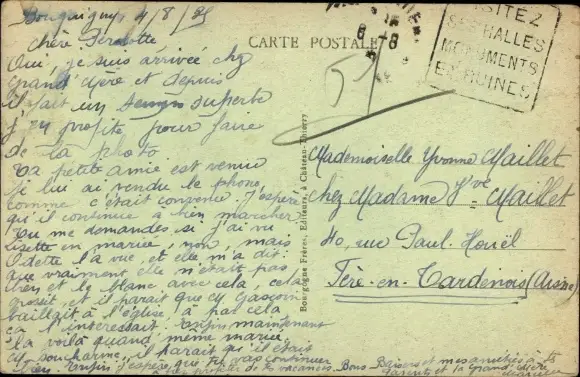 4/8/35
Chère
Oui, je suis arrivée chez
Grand'Mère et depuis
il fait un temps superbe
j'en profite pour faire
de la photo
Ta petite amie est venue
je lui ai vendu le phono
comme c'était convenu. J'espère
qu'il continue à bien marcher
Tu me demandes si j'ai vu
Lisette en mariée, non, mais
Odette l'a vue, et elle m'a dit
que vraiment elle n'était pas
bien et le blanc avec cela, cela
grossit, et il paraît que
baillait à l'église, à pas cela
ça l'intéressait. Enfin maintenant
la voilà quand même mariée
il paraît qu'il était
Enfin j'espère que tu vas continuer
à bien profiter de tes vacances. Bons Baisers et mes amitiés à tes
Parents et ta Grand'Mère
CARTE POSTALE
VISITEZ
SES HALLES
MONUMENTS
EN RUINES
Bourgogne Frères, Editeurs, à Château-Thierry
Mademoiselle Yvonne Maillet
chez Madame Vve Maillet
40, rue Paul Houël
Fère-en-Tardenois (Aisne)